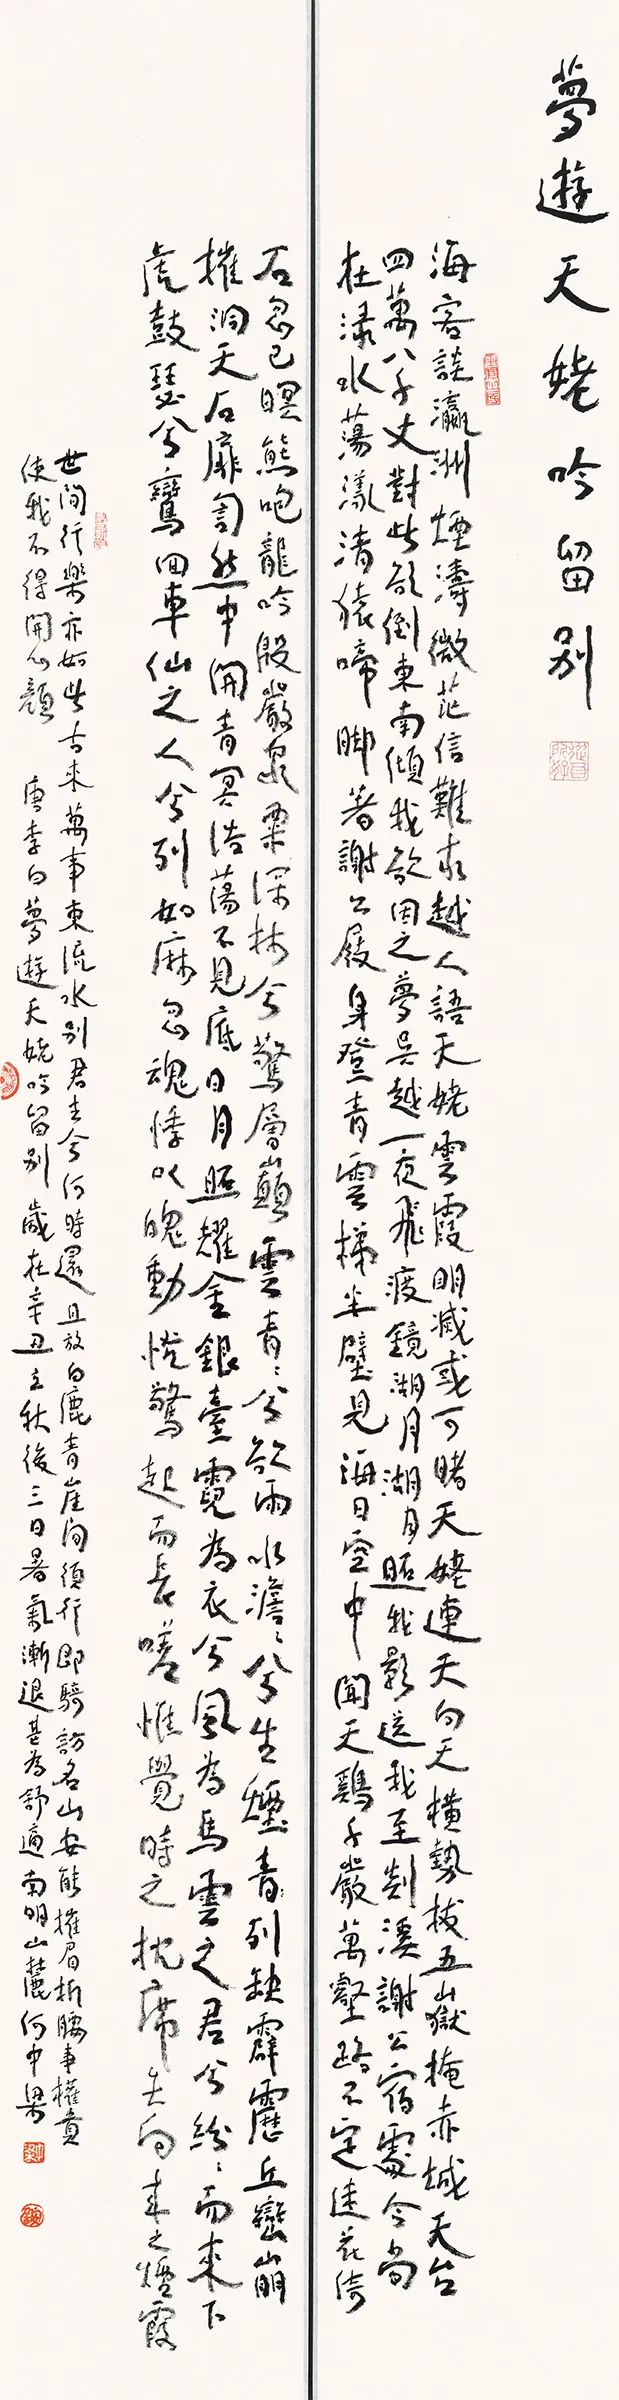 夢遊天姥吟留別
海客談瀛洲煙濤微茫信難求越人語天姥雲霞明滅或可睹天姥連天向天橫勢拔五嶽掩赤城天台
四萬八千丈對此欲倒東南傾我欲因之夢吳越一夜飛渡鏡湖月湖月照我影送我至剡溪謝公宿處今尚
在淥水蕩漾清猿啼脚著謝公屐身登青雲梯半壁見海日空中聞天鷄千巖萬壑路不定迷花倚
石忽已暝熊咆龍吟殷巖泉栗深林兮驚層巔雲青々兮欲雨水澹々兮生煙青列缺霹靂丘巒崩
摧洞天石扉訇然中開青冥浩蕩不見底日月照耀金銀臺霓為衣兮風為馬雲之君兮紛々而來下
虎鼓瑟兮鸞回車仙之人兮列如麻忽魂悸以魄動怳驚起而長嗟惟覺時之枕席失向來之煙霞
世間行樂亦如此古來萬事東流水別君去兮何時還且放白鹿青崖間須行即騎訪名山安能摧眉折腰事權貴
使我不得開心顏 唐李白夢遊天姥吟留別 歲在辛丑立秋後三日暑氣漸退甚為舒適南明山麓何中梁